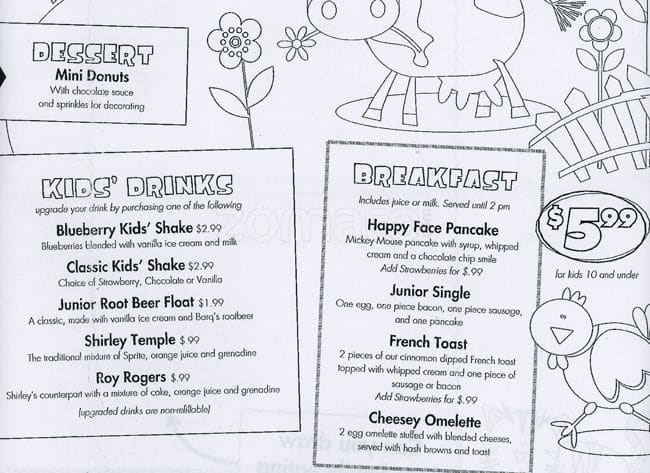 DESSERT
Mini Donuts
With chocolate sauce
and sprinkles for decorating
KIDS' DRINKS
upgrade your drink by purchasing one of the following
Blueberry Kids' Shake $2.99
Blueberries blended with vanilla ice cream and milk
Classic Kids' Shake $2.99
Choice of Strawberry, Chocolate or Vanilla
Junior Root Beer Float $1.99
A classic, made with vanilla ice cream and Barq's rootbeer
Shirley Temple $.99
The traditional mixture of Sprite, orange juice and grenadine
Roy Rogers $.99
Shirley's counterpart with a mixture of coke, orange juice and grenadine
(upgraded drinks are non-refillable)
BREAKFAST
Includes juice or milk. Served until 2 pm
Happy Face Pancake
Mickey Mouse pancake with syrup, whipped
cream and a chocolate chip smile
Add Strawberries for $.99
Junior Single
One egg, one piece bacon, one piece sausage,
and one pancake
French Toast
2 pieces of our cinnamon dipped French toast
topped with whipped cream and one piece of
sausage or bacon
Add Strawberries for $.99
Cheesey Omelette
2 egg omelette stuffed with blended cheeses,
served with hash browns and toast
$5.99
for kids 10 and under
zomato